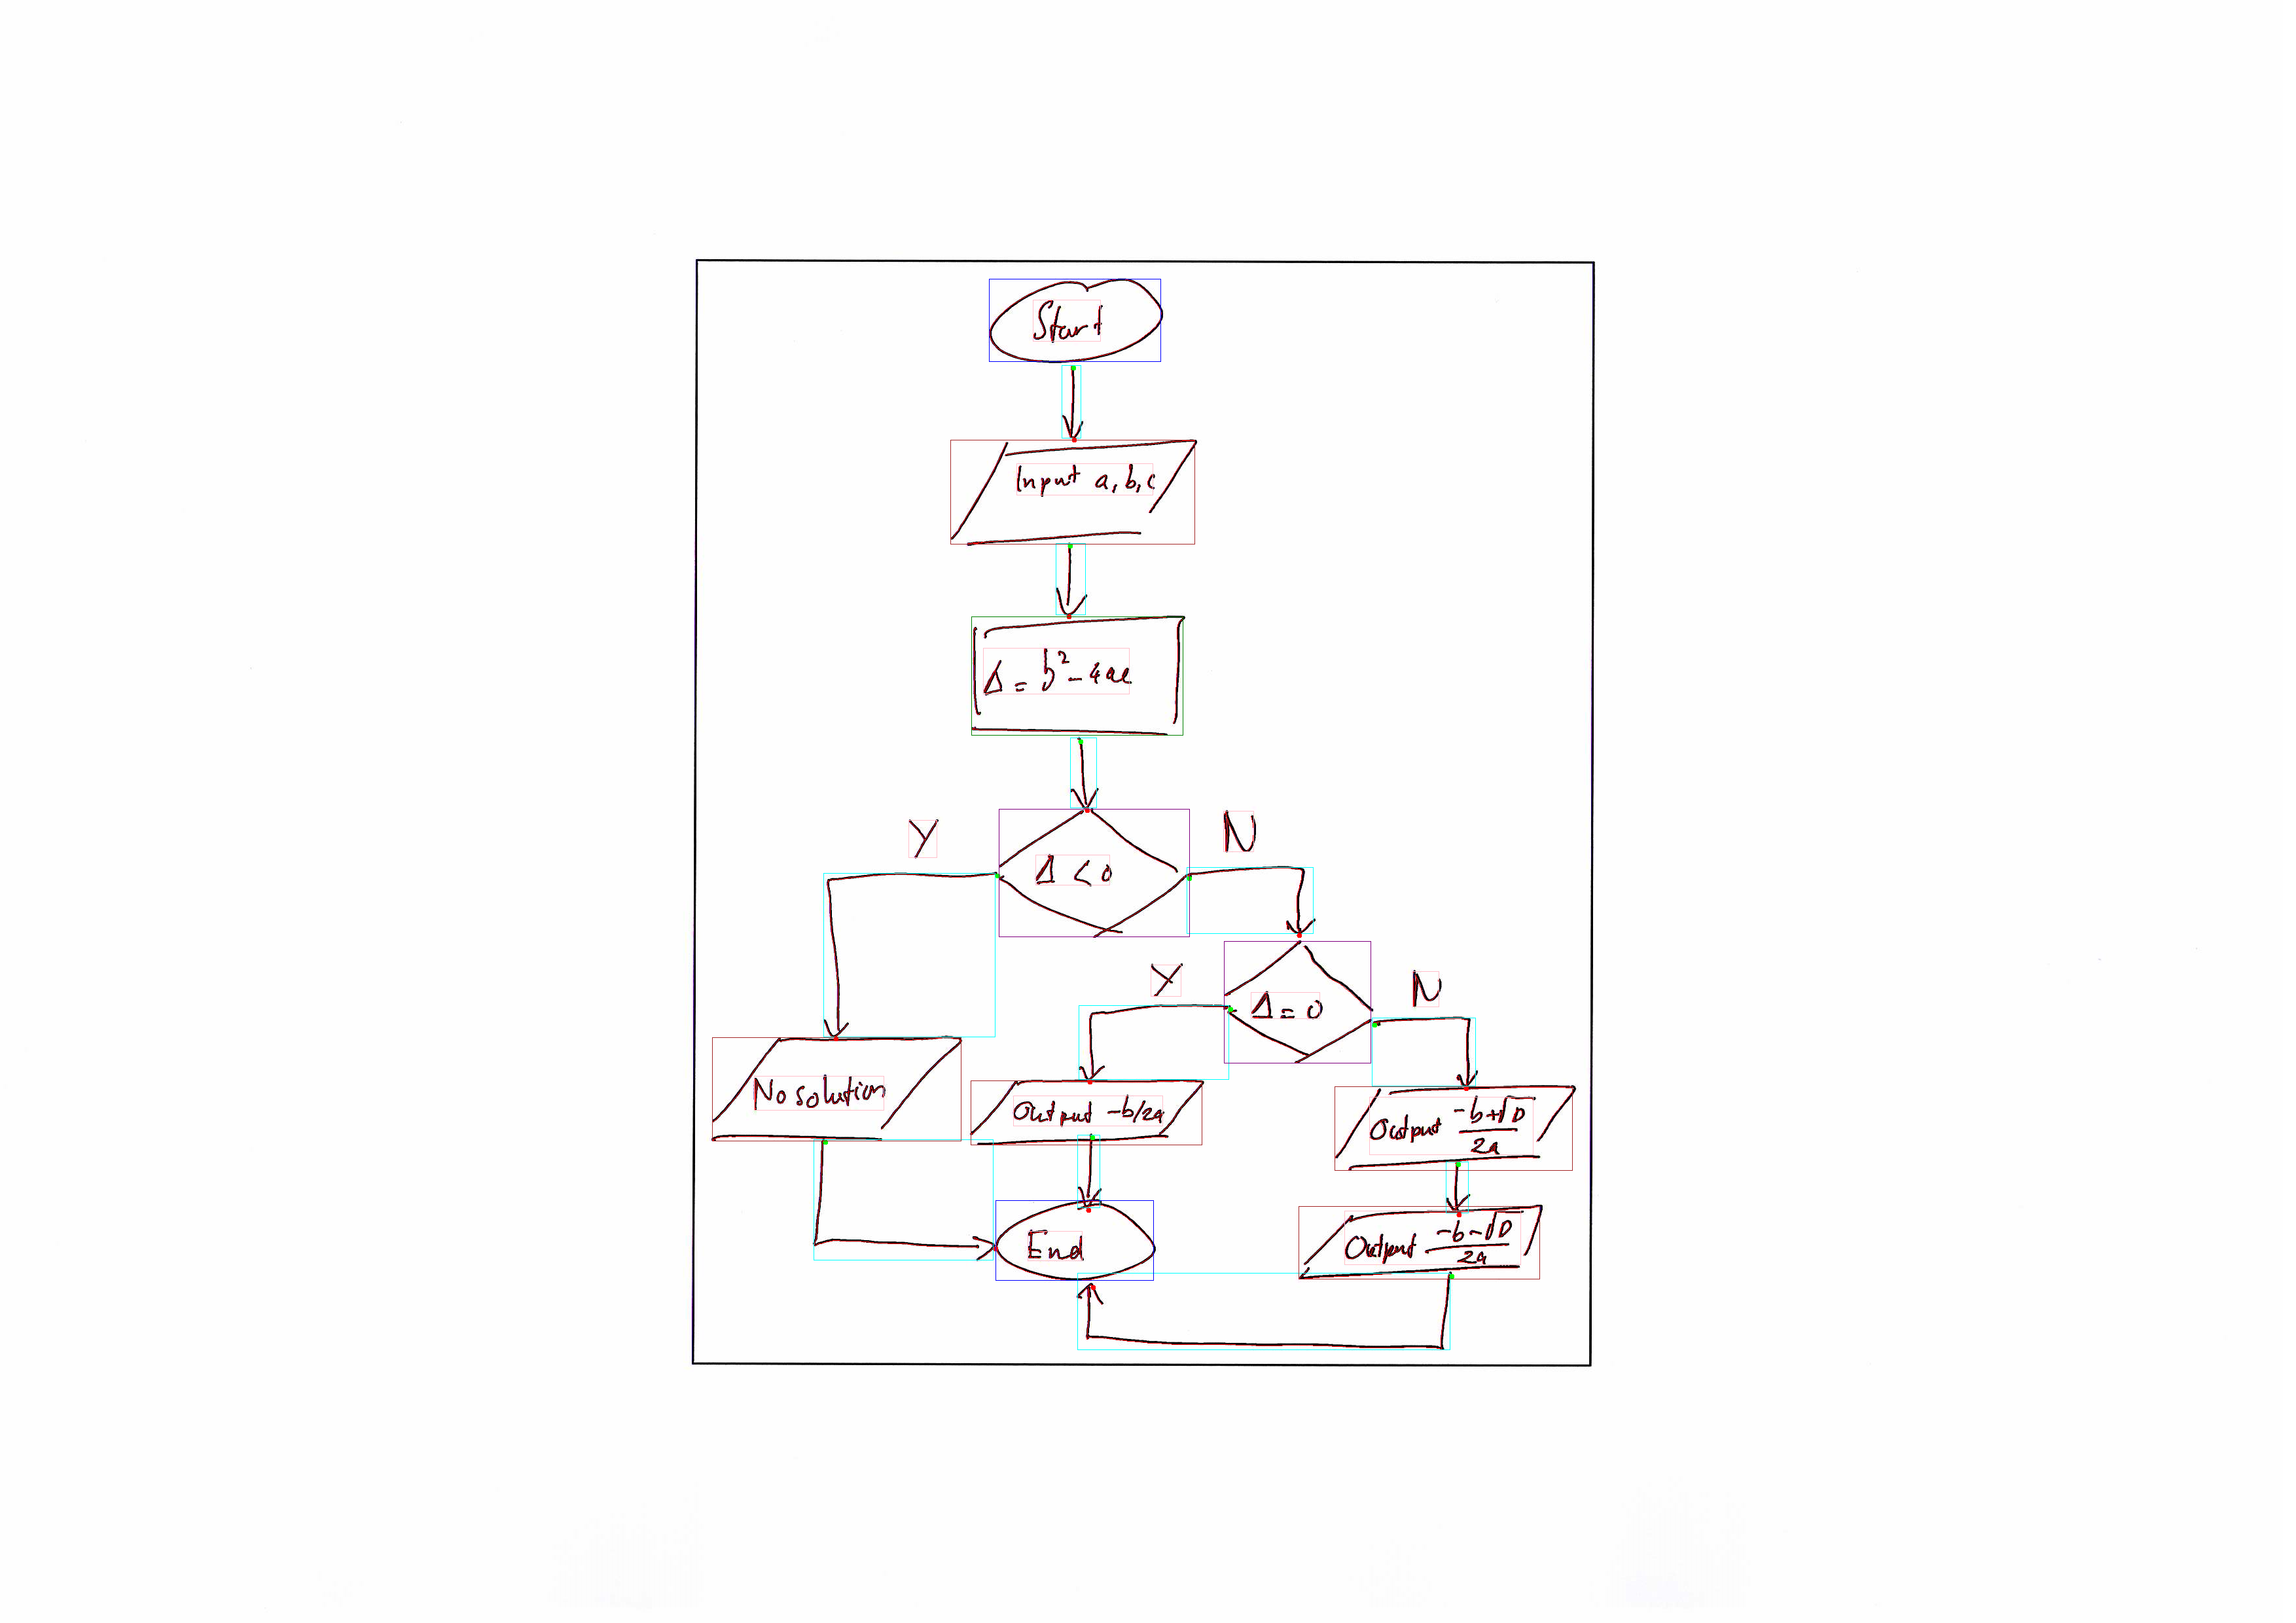 Start
Input a, b, c
Δ = b² - 4ac
Y
N
Δ < 0
Y
N
Δ = 0
No solution
Output -b/2a
Output (-b+√D)/2a
End
Output (-b-√D)/2a